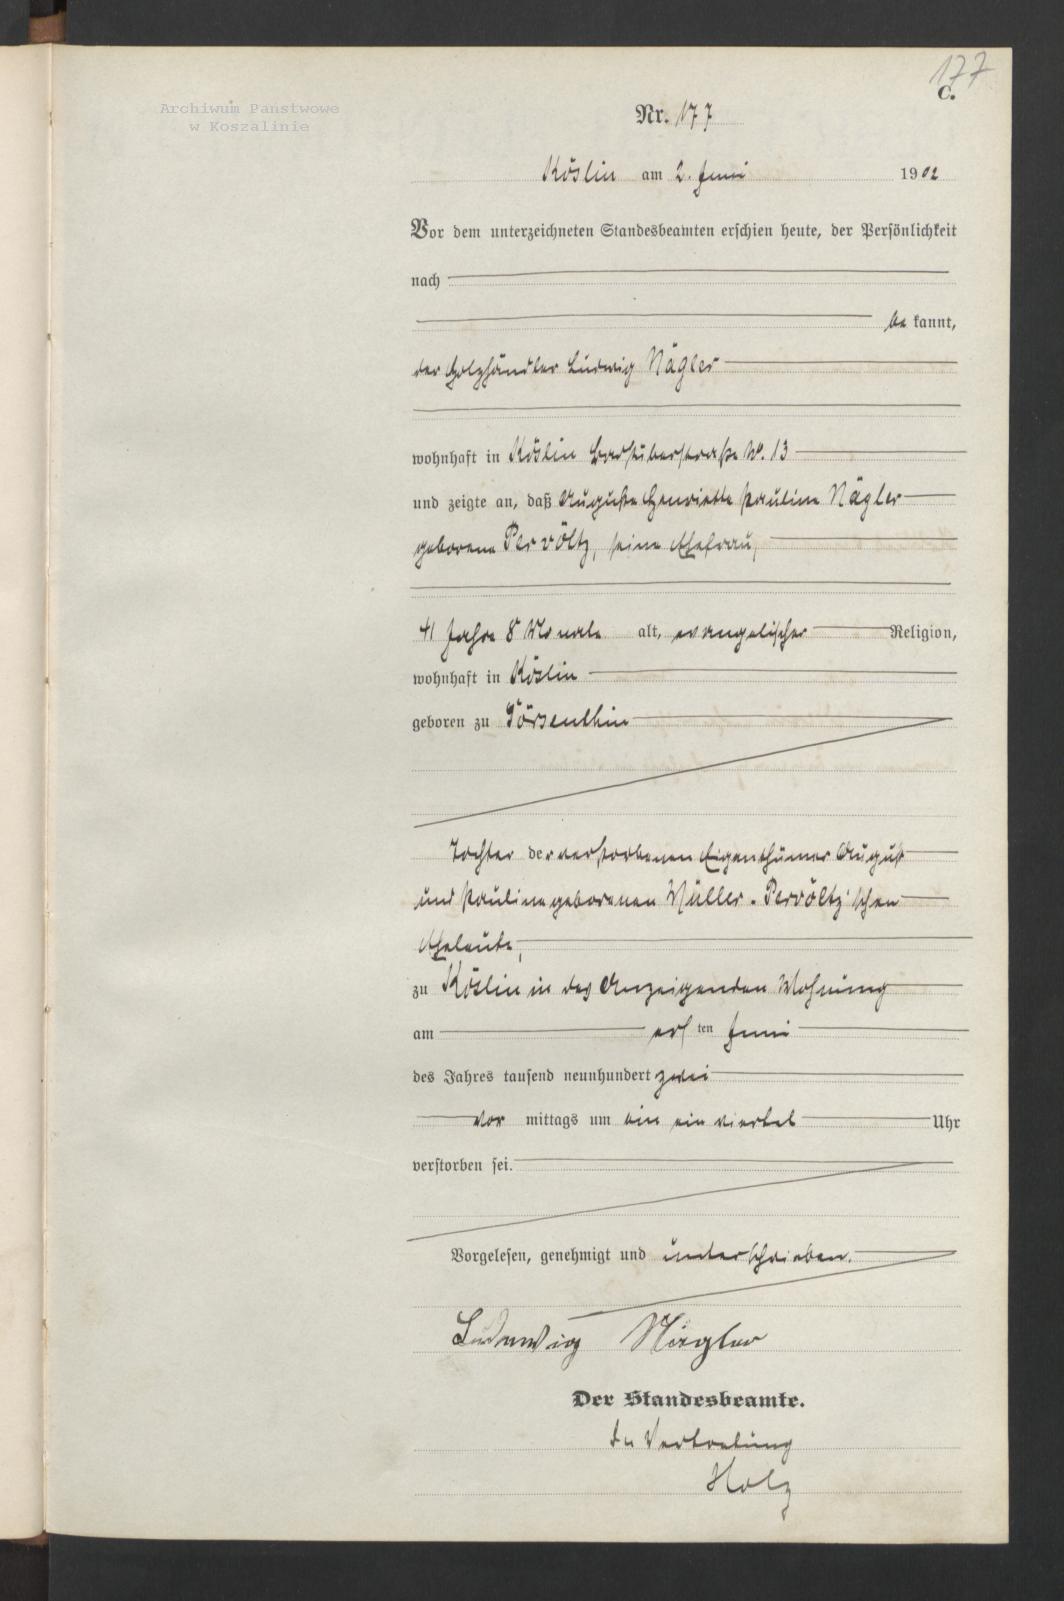 177
C.
Archiwum Państwowe
w Koszalinie
Nr. 177
Köslin am 2. Juni 1902
Vor dem unterzeichneten Standesbeamten erschien heute, der Persönlichkeit
nach
be kannt,
der Holzhändler Ludwig Nägler
wohnhaft in Köslin Badstüberstraße No. 13
und zeigte an, daß Auguste Henriette Pauline Nägler
geborene Pervöltz, seine Ehefrau,
41 Jahre 8 Monate alt, evangelischer Religion,
wohnhaft in Köslin
geboren zu Pörsenthin
Tochter der verstorbenen Eigenthümer August
und Pauline geborenen Müller - Pervöltz'schen
Eheleute,
zu Köslin in des Anzeigenden Wohnung
am ersten Juni
des Jahres tausend neunhundert zwei
vor mittags um ein ein viertel Uhr
verstorben sei.
Vorgelesen, genehmigt und unterschrieben.
Ludwig Nägler
Der Standesbeamte.
In Vertretung
Holz